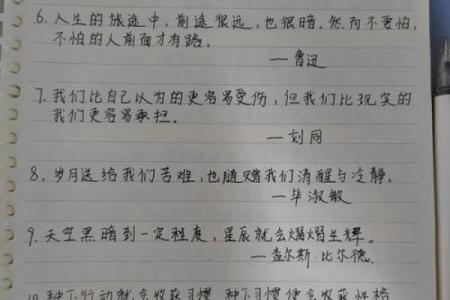 6. 人生的旅途中，前途很远，也很暗。然而不要怕，
不怕的人前面才有路。
—鲁迅
7. 我们比自己以为的更容易受伤，但我们比现实的
我们更容易承担。
—刘同
8. 岁月送给我们苦难，也随赠我们清醒与冷静。
—毕淑敏
9. 天空黑暗到一定程度，星辰就会熠熠生辉。
—查尔斯·比尔德.
10. 种下行动就会收获习惯，种下习惯便会收获性格